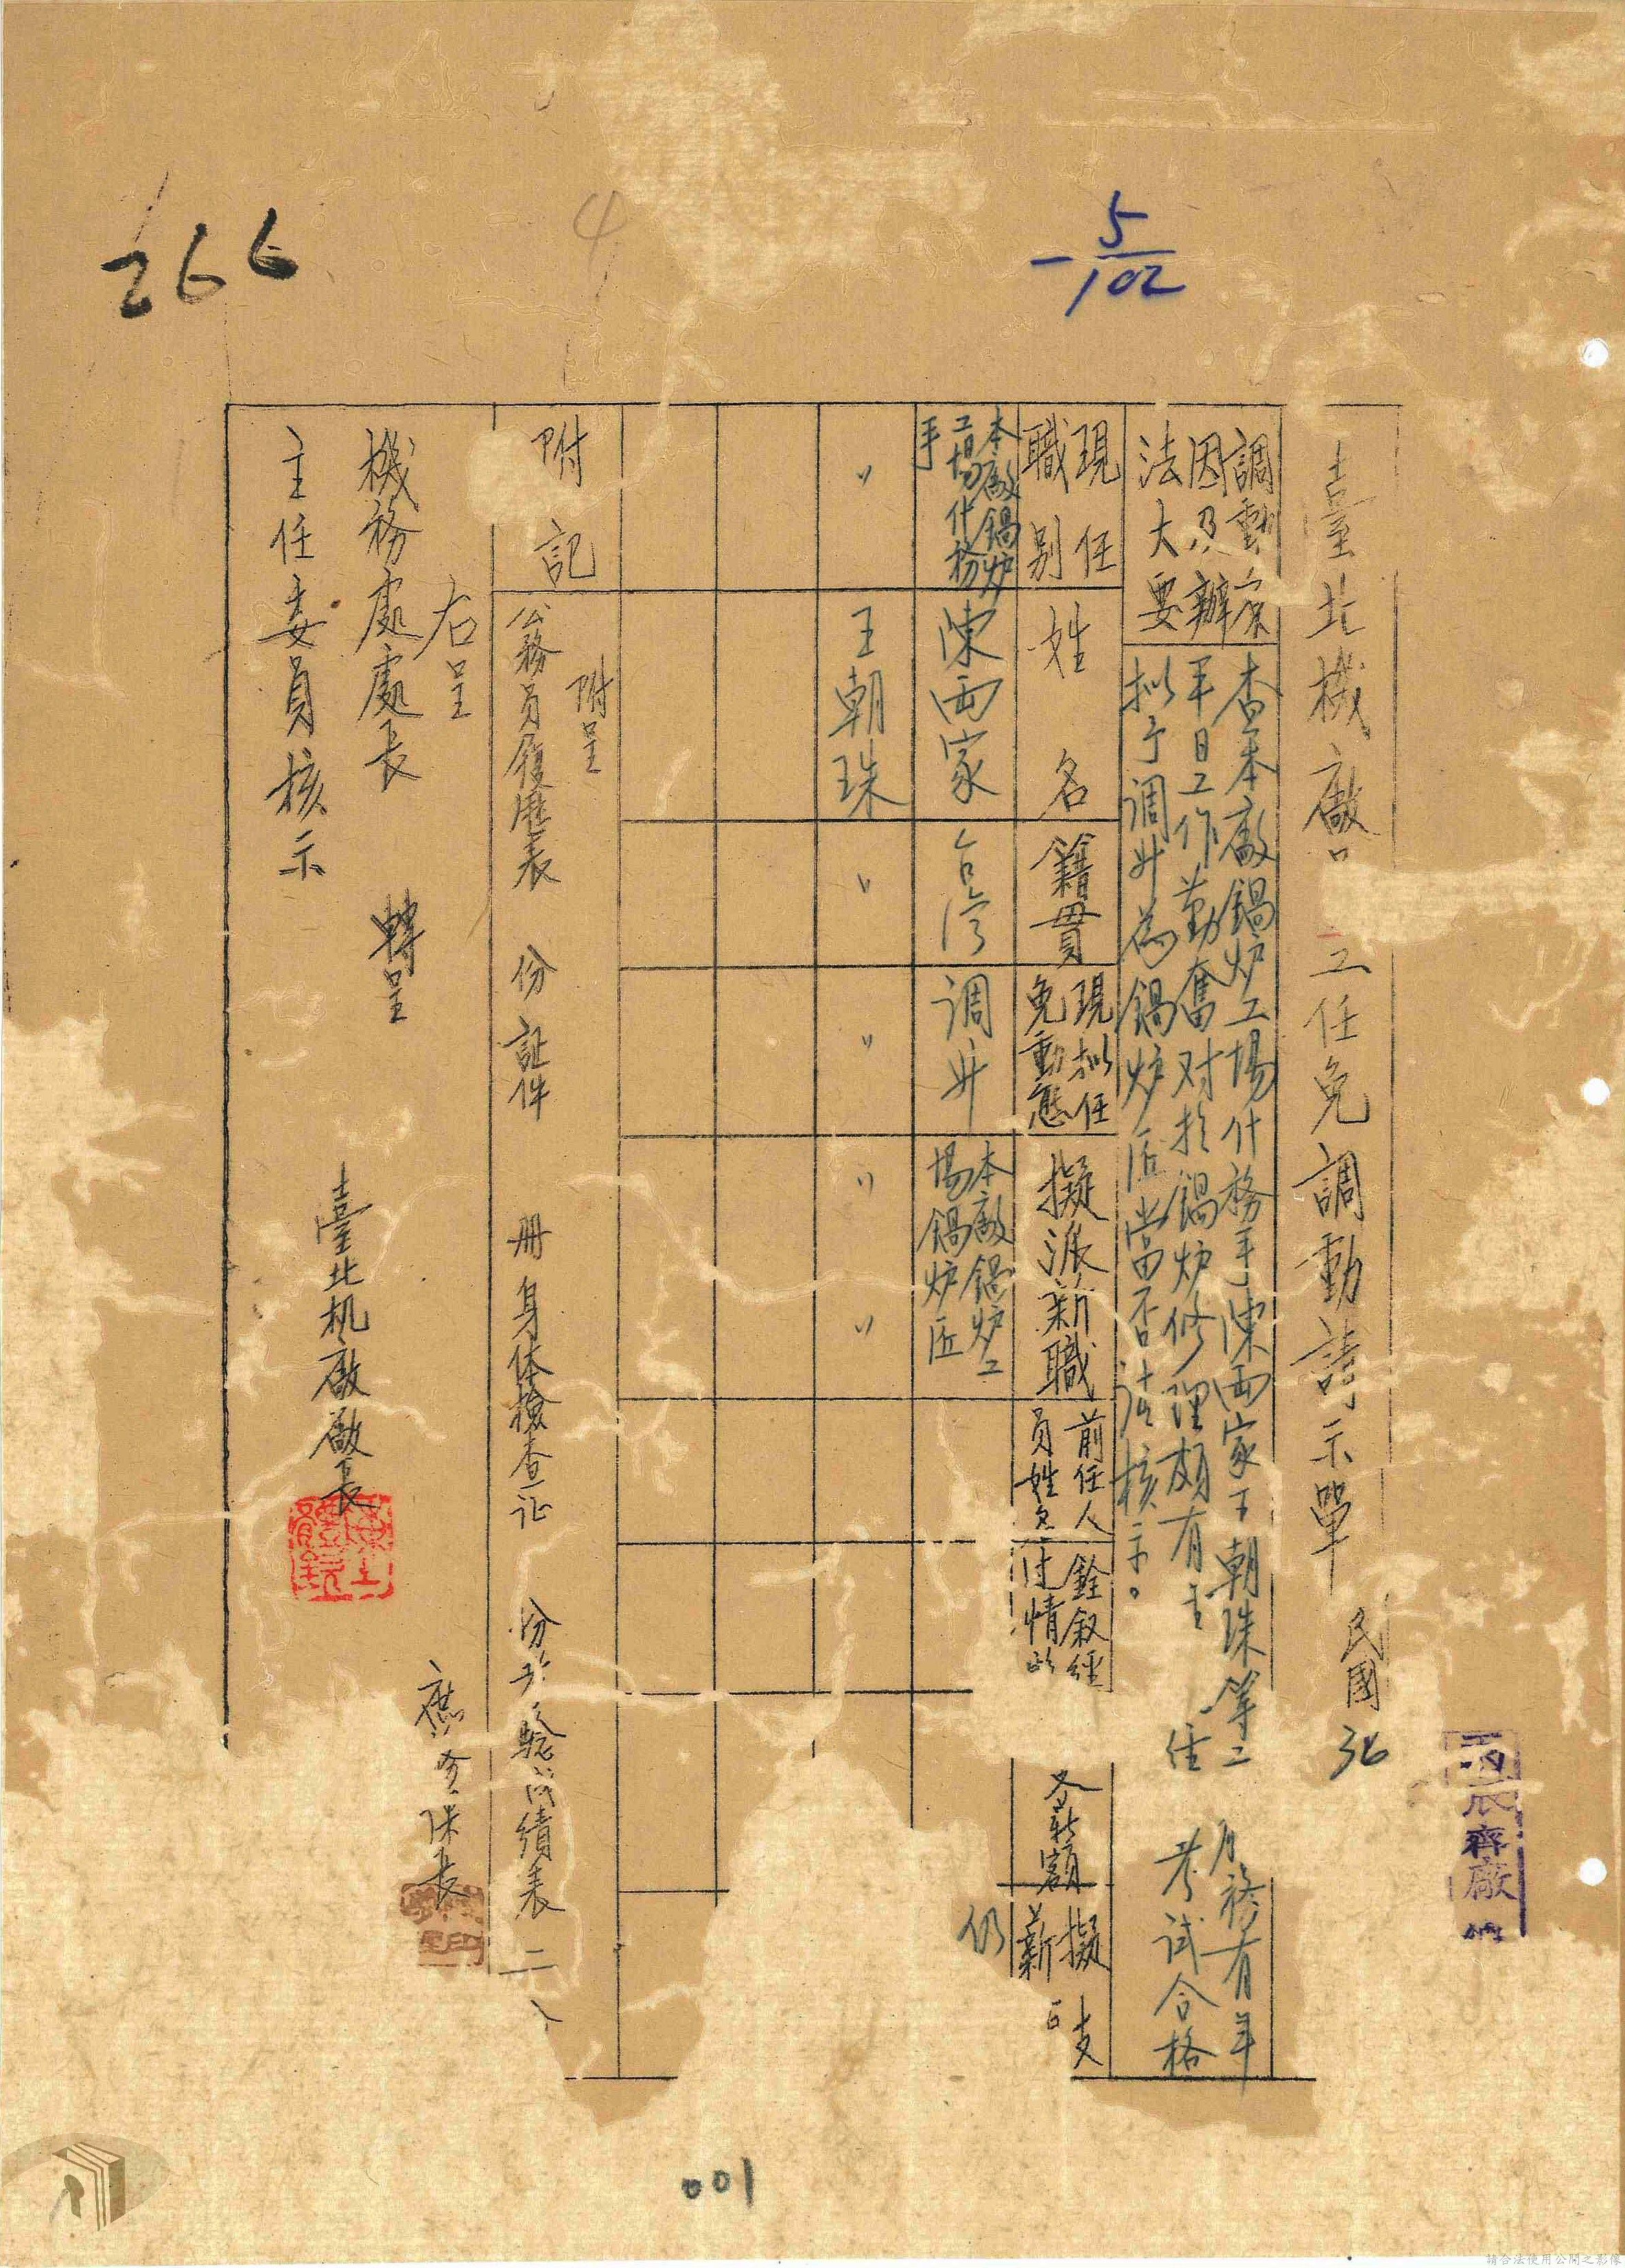 266
4
5
102
臺北機廠 工任免調動請示單
民國36
調動案
因及辦
法大要
查本廠鍋炉工場什務手陳西家王朝珠等二 務有年
平日工作勤奮对於鍋炉修理頗有 考試合格
拟予调升為鍋炉匠當否请核示。
現任
職別
姓名
籍貫
現拟任
免動態
擬派新職
前任人
員姓名
銓叙經
过情
薪額
擬支
薪
本廠鍋炉
工場什務
手
陳西家
台湾
调升
本廠鍋炉工
場鍋炉匠
仍
〃
王朝珠
〃
〃
〃
〃
附記
附呈
公務員履歷表 份 証件 册 身体檢查证 份 驗成績表 二
右呈
機務處處長 轉呈
主任委員核示
臺北机廠廠長
001
請合法使用公開之影像